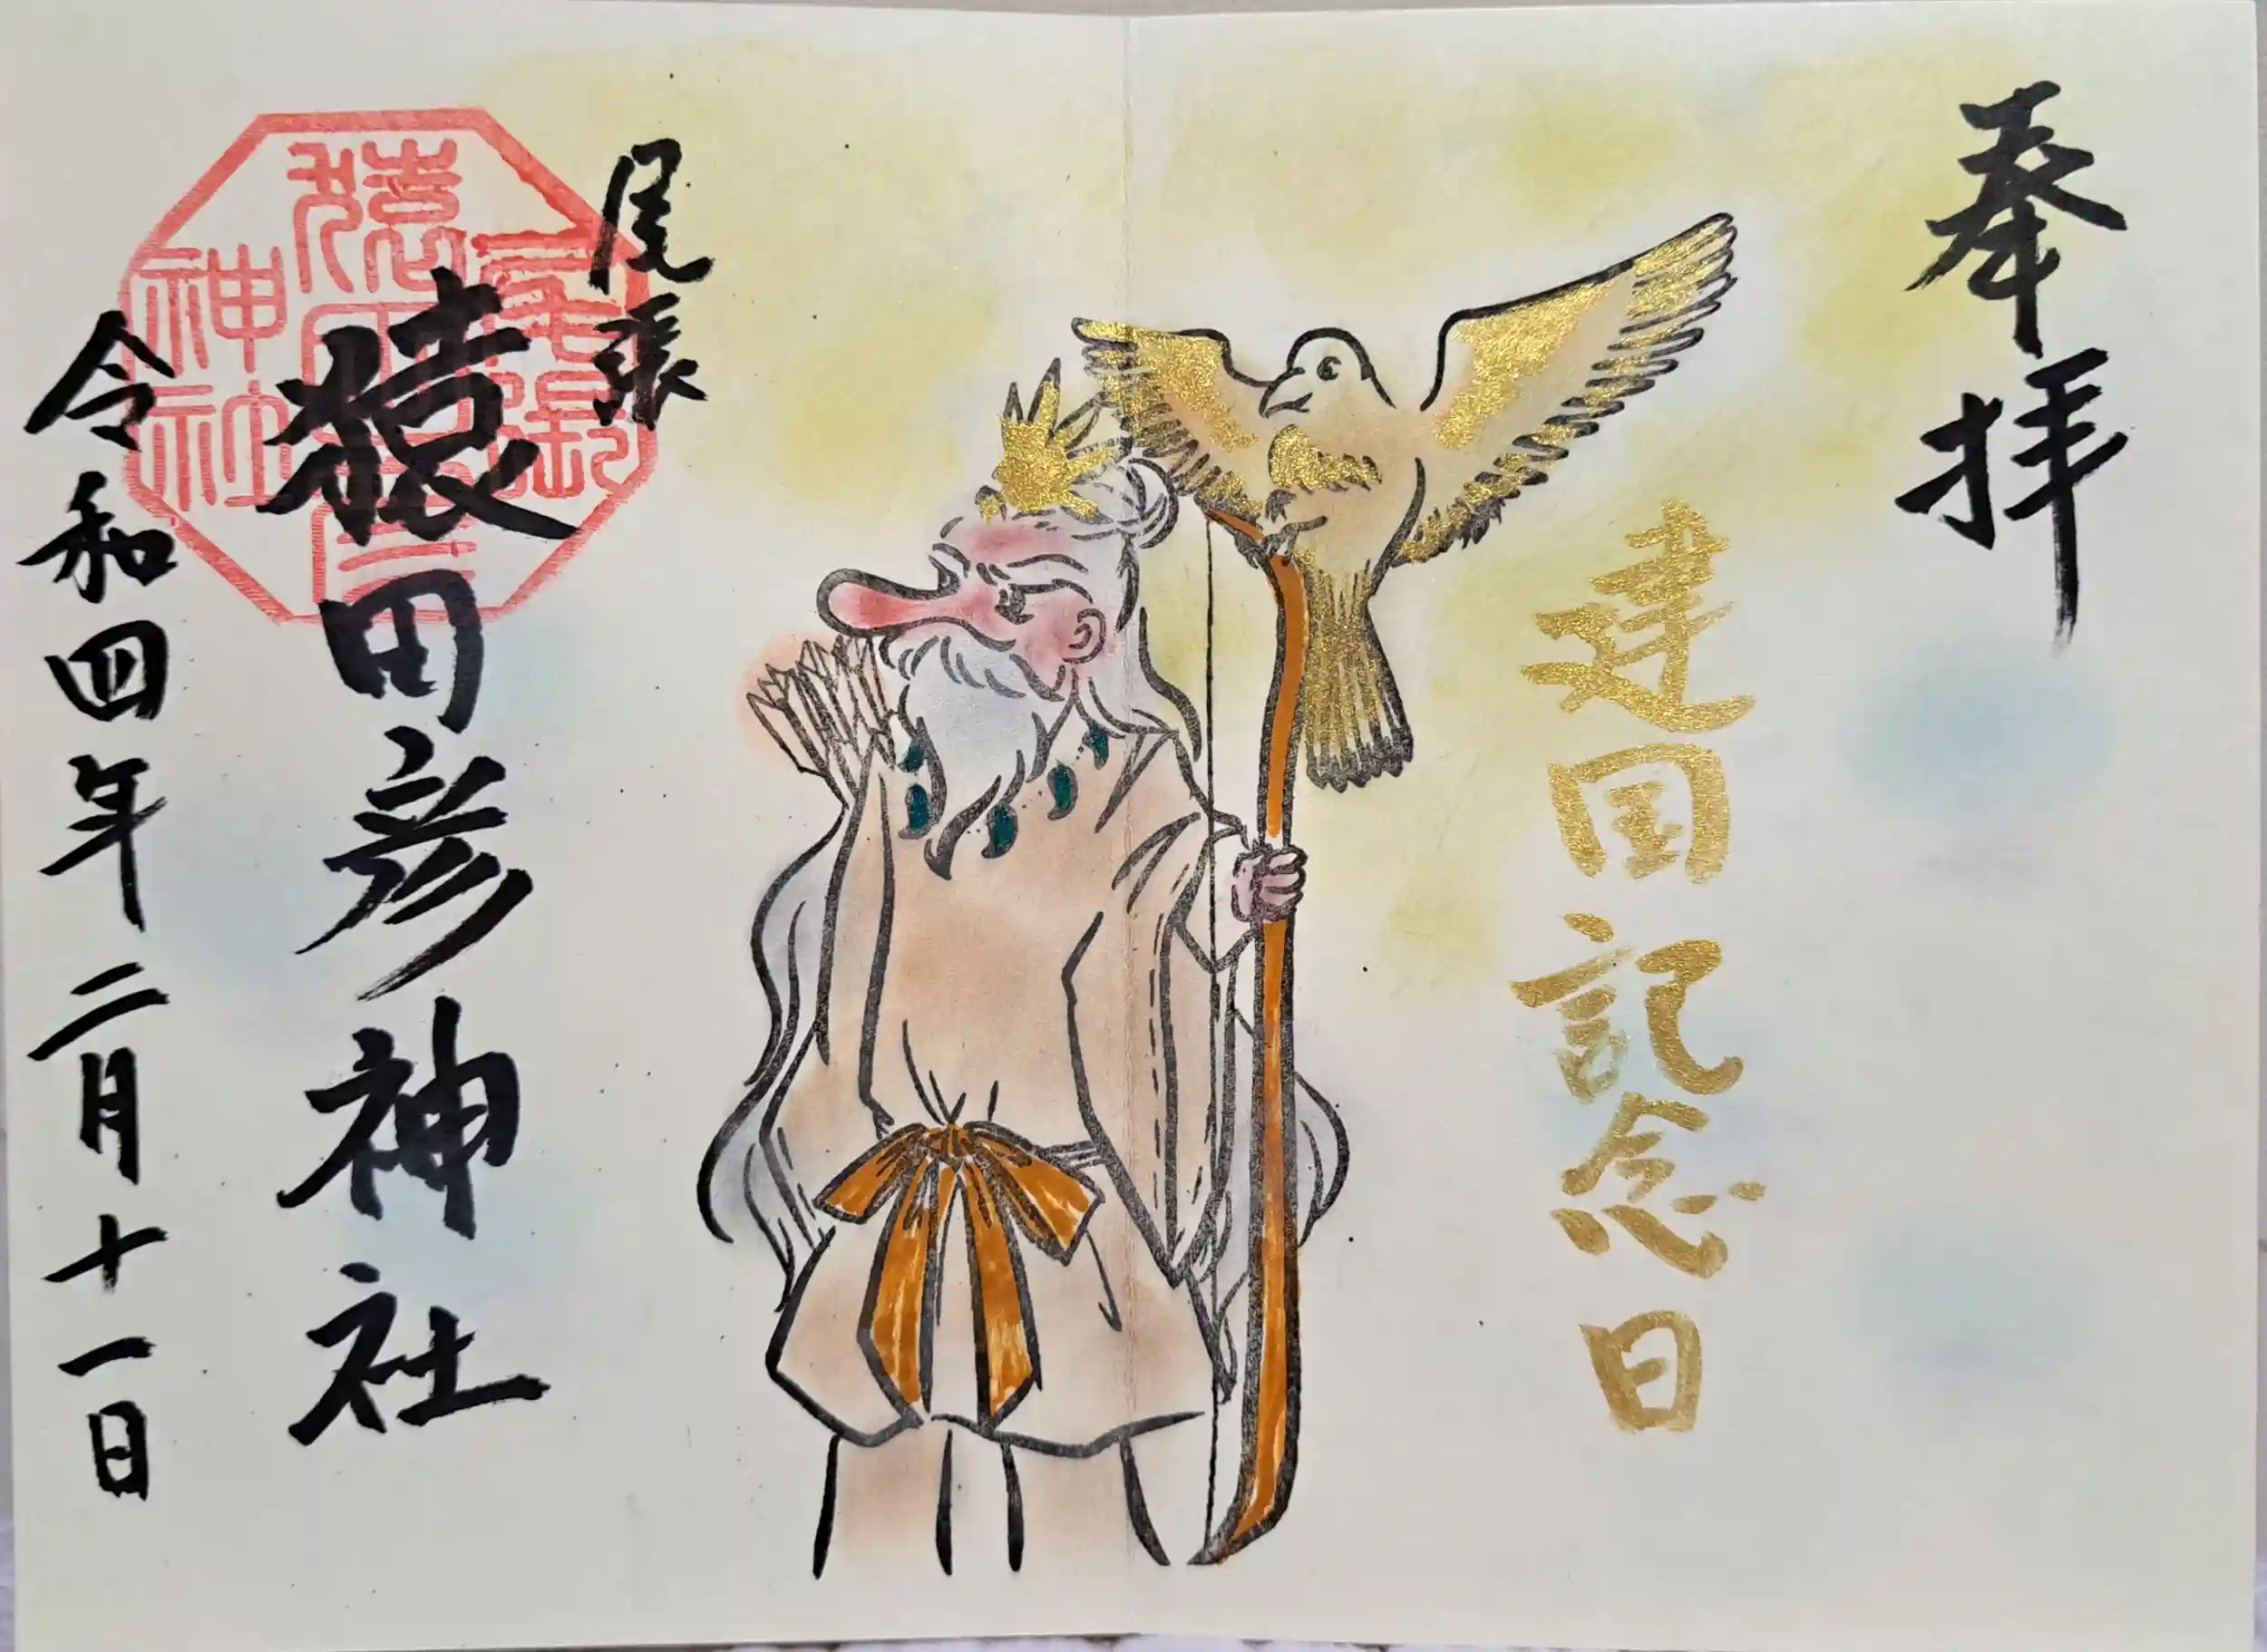 奉拝
建国記念日
尾張
猿田彦神社
令和四年二月十一日
尾張
猿田彦三
神社